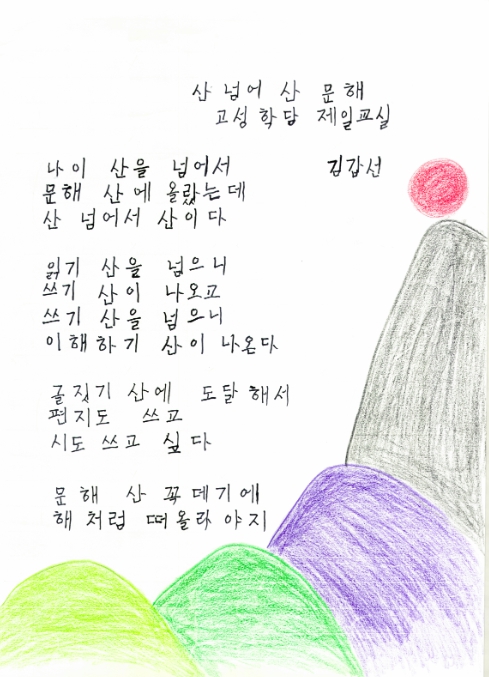 산 넘어 산 문해
고성학당 제일교실
김갑선
나이 산을 넘어서
문해 산에 올랐는데
산 넘어서 산이다
읽기 산을 넘으니
쓰기 산이 나오고
쓰기 산을 넘으니
이해하기 산이 나온다
글짓기 산에 도달해서
편지도 쓰고
시도 쓰고 싶다
문해 산 꼭데기에
해처럼 떠올라야지